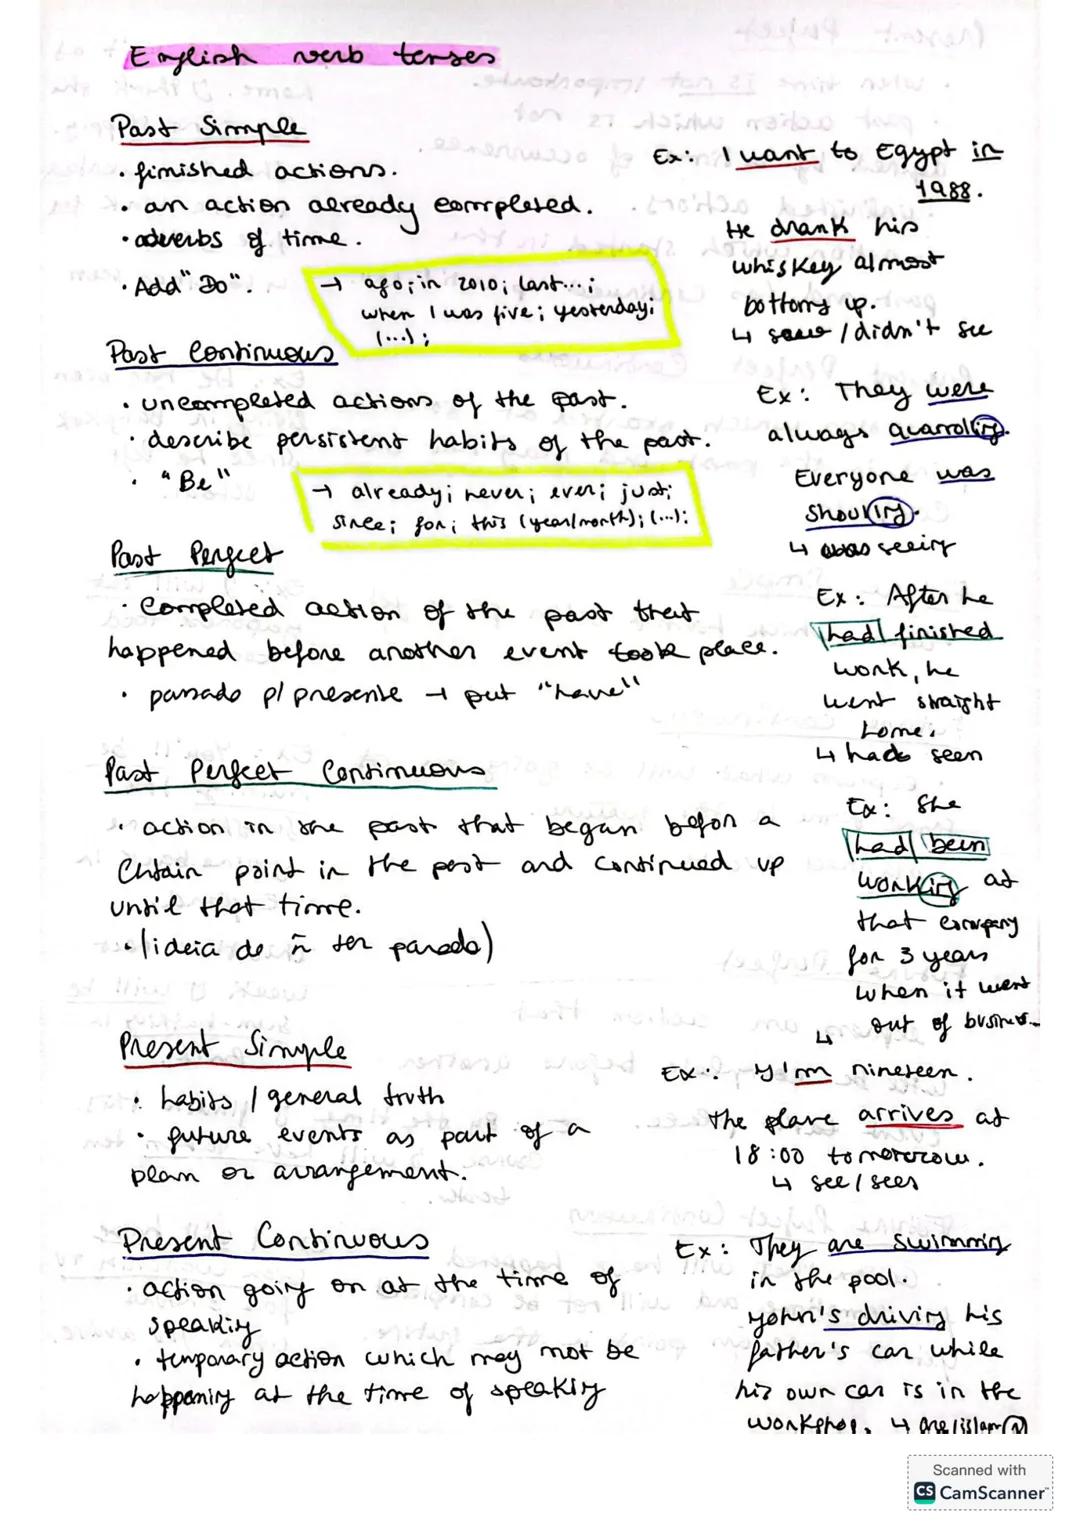 English verb tenses
Past Simple
• finished actions.
• an action already completed.
• adverbs of time.
• Add "Do".
→ ago; in 2010; last...;
when I was five; yesterday;
(...);
Ex: I want to Egypt in
1988.
He drank his
whiskey almost
bottom up.
↳ saw / didn't see
Past Continuous
• uncompleted actions of the past.
• describe persistent habits of the past.
• "Be"
→ already; never; ever; just;
since; for; this (year/month); (...);
Ex: They were
always quarroling.
Everyone was
shouting.
↳ was seeing
Past Perfect
• Completed action of the past that
happened before another event took place.
• passado p/ presente → put "have"
Ex: After he
had finished
work, he
went straight
home.
↳ had seen
Past Perfect Continuous
• action in the past that began befor a
certain point in the past and continued up
until that time.
• (ideia de ñ ter parado)
Ex: She
had been
working at
that company
for 3 years
when it went
out of
↳
Present Simple
• habits / general truth
• future events as part of a
plan or arrangement.
Ex: I'm nineteen.
The plane arrives at
18:00 tomorrow.
↳ see / sees
Present Continuous
• action going on at the time of
speaking
• temporary action which may not be
happening at the time of speaking
Ex: They are swimming
in the pool.
John's driving his
father's car while
his own car is in the
workshop. ↳ are/is/am
Scanned with
CS CamScanner